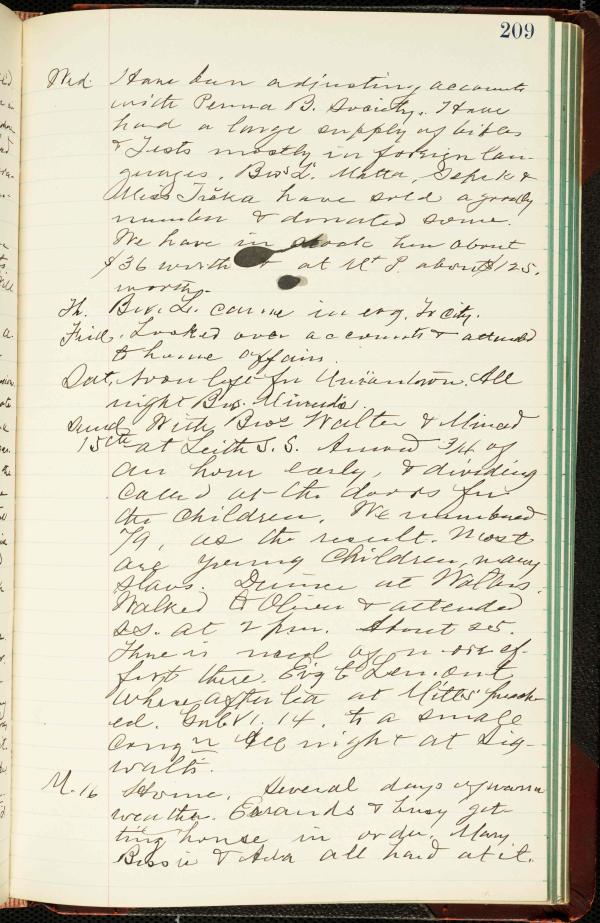 209
Wed. Have been adjusting accounts
with Penna B. Society. Have
had a large supply of bibles
& Tests mostly in foreign lan-
guages. Bros L. Motta, Sepik &
Miss Tiska have sold a goodly
number & donated some.
We have in stock here about
$36 worth & at Mt P. about $125.
worth.
Th. Bro. L. came in evg. fr city.
Frid. Looked over accounts & attended
to home affairs.
Sat. Noon left for Uniontown. All
night Bro.
Sund. With Bros Walter &
15th at Leith S.S. Arrived 3/4 of
an hour early, & dividing
called at the doors for
the children. We numbered
79, as the result. Most
are young children, many
Slavs. Dinner at Walters.
Walked to Oliver & attended
S.S. at 2 p.m. About 25.
There is need of more ef-
fort there. Evg to Lemont
where after tea at preach-
ed. Gal VI. 14. to a small
congn All night at Sig-
walts.
M. 16 Home. Several days of warm
weather. Errands & busy get-
ting house in order. Mary
Bessie & Ada all hard at it.